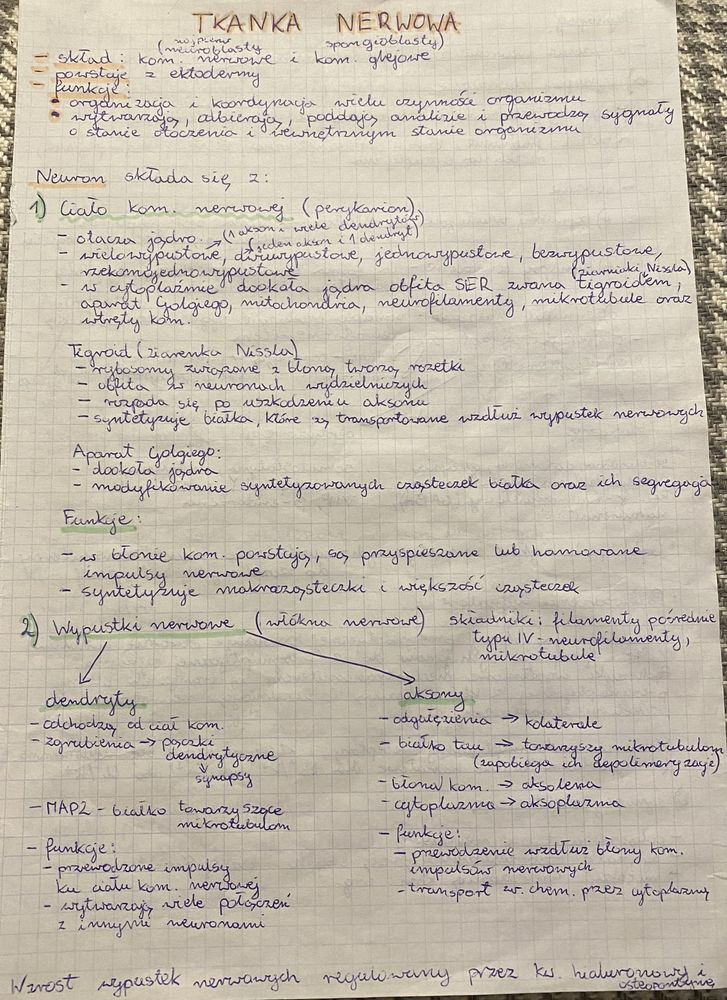 TKANKA NERWOWA
najpierw (neuroblasty spongioblasty)
- skład: kom. nerwowe i kom. glejowe
- powstaje z ektodermy
- funkcje:
• organizacja i koordynacja wielu czynność organizmu
• wytwarzają, odbierają, poddają analizie i przewodzą sygnały
o stanie otoczenia i wewnętrznym stanie organizmu
Neuron składa się z:
1) Ciało kom. nerwowej (perykarion)
- otacza jądro
(1 akson i wiele dendrytów)
(jeden akson i 1 dendryt)
- wielowypustowe, dwuwypustowe, jednowypustowe, bezwypustowe,
rzekomojednowypustowe
(ziarniaki Nissla)
- w cytoplaźmie dookoła jądra obfita SER zwana tigroidem,
aparat Golgiego, mitochondria, neurofilamenty, mikrotubule oraz
wtręty kom.
Tigroid (ziarenka Nissla)
- rybosomy związane z błoną, tworzą rozetki
- obfita w neuronach wydzielniczych
- rozpada się po uszkodzeniu aksonu
- syntetyzuje białka, które są transportowane wzdłuż wypustek nerwowych
Aparat Golgiego:
- dookoła jądra
- modyfikowanie syntetyzowanych cząsteczek białka oraz ich segregacja
Funkcje:
- w błonie kom. powstają, są przyspieszane lub hamowane
impulsy nerwowe
- syntetyzuje makrocząsteczki i większość cząsteczek
2) Wypustki nerwowe (włókna nerwowe) składniki: filamenty pośrednie
typu IV - neurofilamenty,
mikrotubule
dendryty
- odchodzą od ciał kom.
- zgrubienia → pączki
dendrytyczne
↓
synapsy
- MAP2 - białko towarzyszące
mikrotubulom
- funkcje:
- przewodzone impulsy
ku ciału kom. nerwowej
- wytwarzają wiele połączeń
z innymi neuronami
aksony
- odgałęzienia → kolaterale
- białko tau → towarzyszy mikrotubulom
(zapobiega ich depolimeryzacje)
- błona kom. → aksolema
- cytoplazma → aksoplazma
- funkcje:
- przewodzenie wzdłuż błony kom.
impulsów nerwowych
- transport zw. chem. przez cytoplazmę
Wzrost wypustek nerwowych regulowany przez kw. hialuronowy i
osteopontynę